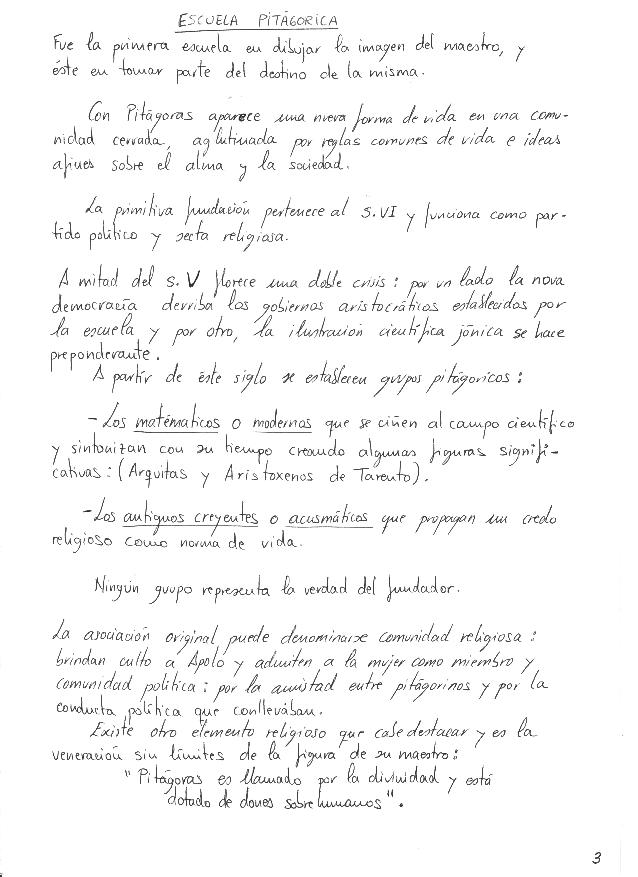 ESCUELA PITÁGORICA
Fue la primera escuela en dibujar la imagen del maestro, y
éste en tomar parte del destino de la misma.
Con Pitágoras aparece una nueva forma de vida en una comu-
nidad cerrada, aglutinada por reglas comunes de vida e ideas
afines sobre el alma y la sociedad.
La primitiva fundación pertenece al s.VI y funciona como par-
tido político y secta religiosa.
A mitad del s.V florece una doble crisis: por un lado la nova
democracia derriba los gobiernos aristocráticos establecidos por
la escuela y por otro, la ilustración científica jónica se hace
preponderante.
A partir de éste siglo se establecen grupos pitágoricos:
-Los matématicos o modernos que se ciñen al campo científico
y sintonizan con su tiempo creando algunas figuras signifi-
cativas: (Arquitas y Aristoxenos de Tarento).
-Los antiguos creyentes o acusmáticos que propagan un credo
religioso como norma de vida.
Ningún grupo representa la verdad del fundador.
La asociación original puede denominarse comunidad religiosa:
brindan culto a Apolo y admiten a la mujer como miembro y
comunidad política: por la amistad entre pitágorinos y por la
conducta política que conllevában.
Existe otro elemento religioso que cabe destacar y es la
veneración sin límites de la figura de su maestro:
"Pitágoras es llamado por la divinidad y está
dotado de dones sobrehumanos".
3